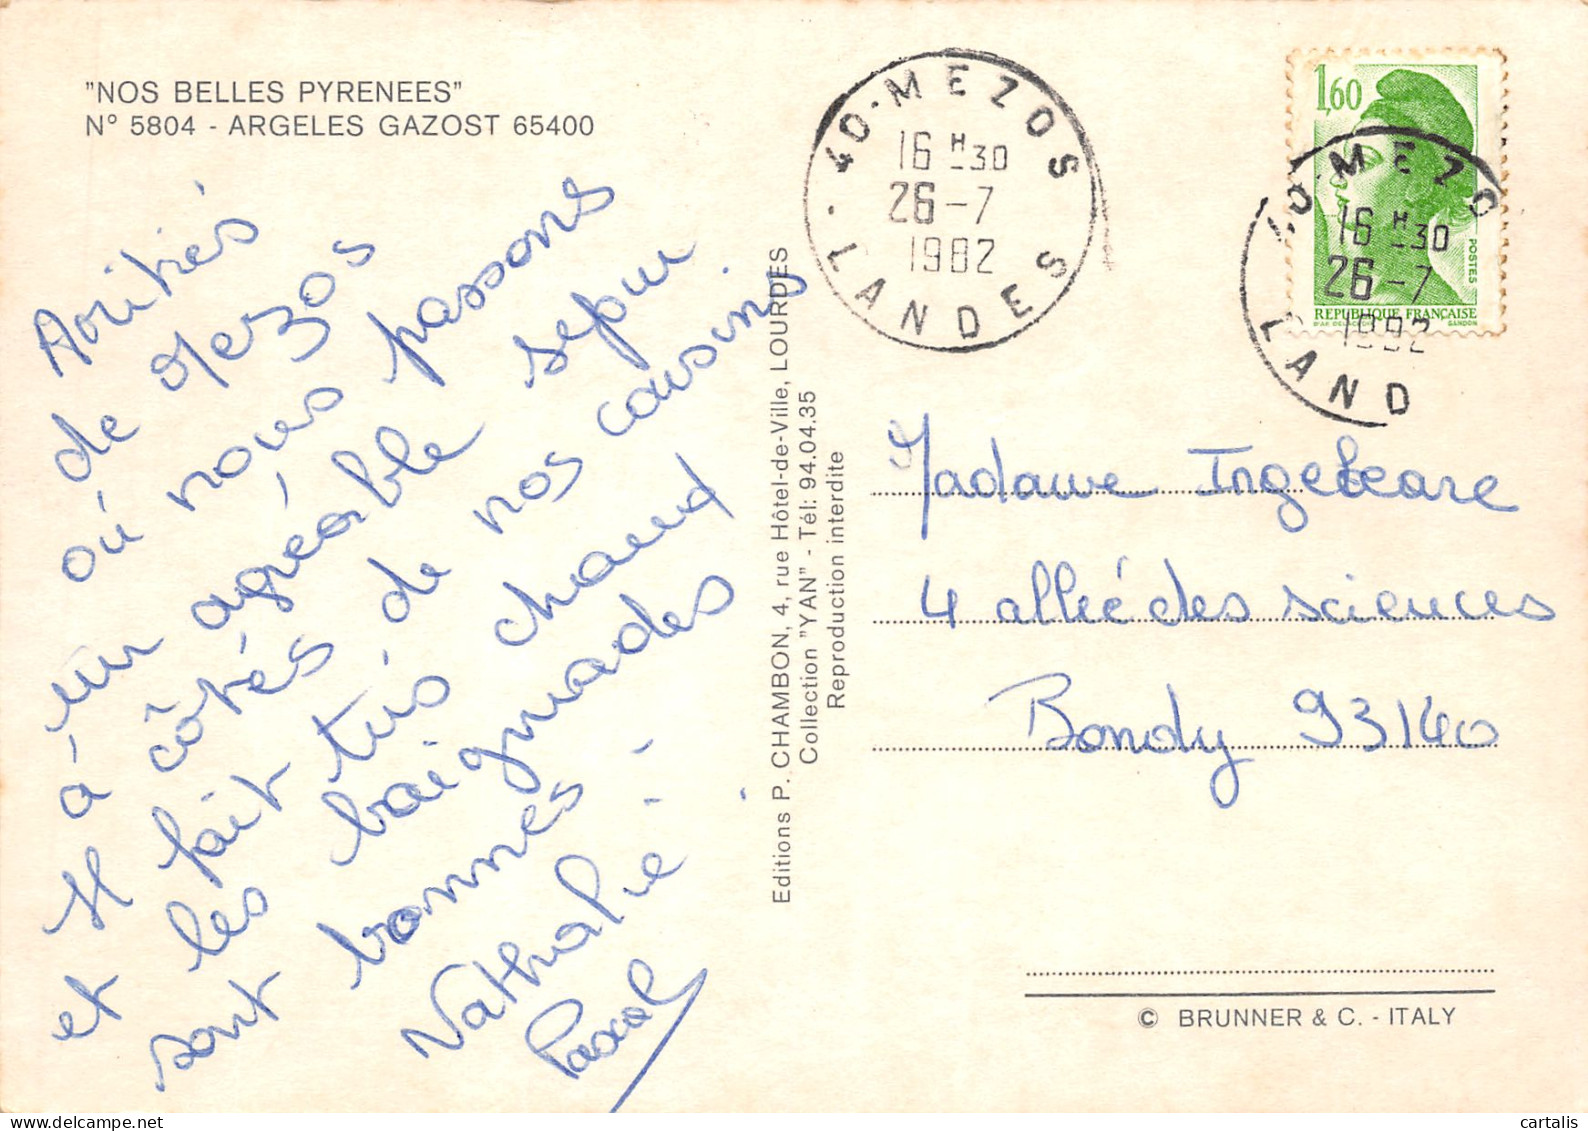 "NOS BELLES PYRENEES"
N° 5804 - ARGELES GAZOST 65400
Amitiés
de Mezos
où nous passons
un agréable séjour
à côtés de nos cousins
Il fait très chaud
et les baignades
sont bonnes !
Nathalie
Pascal
Editions P. CHAMBON, 4, rue Hôtel-de-Ville, LOURDES
Collection "YAN" - Tél: 94.04.35
Reproduction interdite
40 - MEZOS
16 H 30
26 - 7
1982
LANDES
1,60
POSTES
REPUBLIQUE FRANÇAISE
D'AP. DELACROIX GANDON
40 - MEZO
16 H 30
26 - 7
1982
LAND
Madame Ingeleare
4 allée des sciences
Bondy 93140
© BRUNNER & C. - ITALY
cartalis